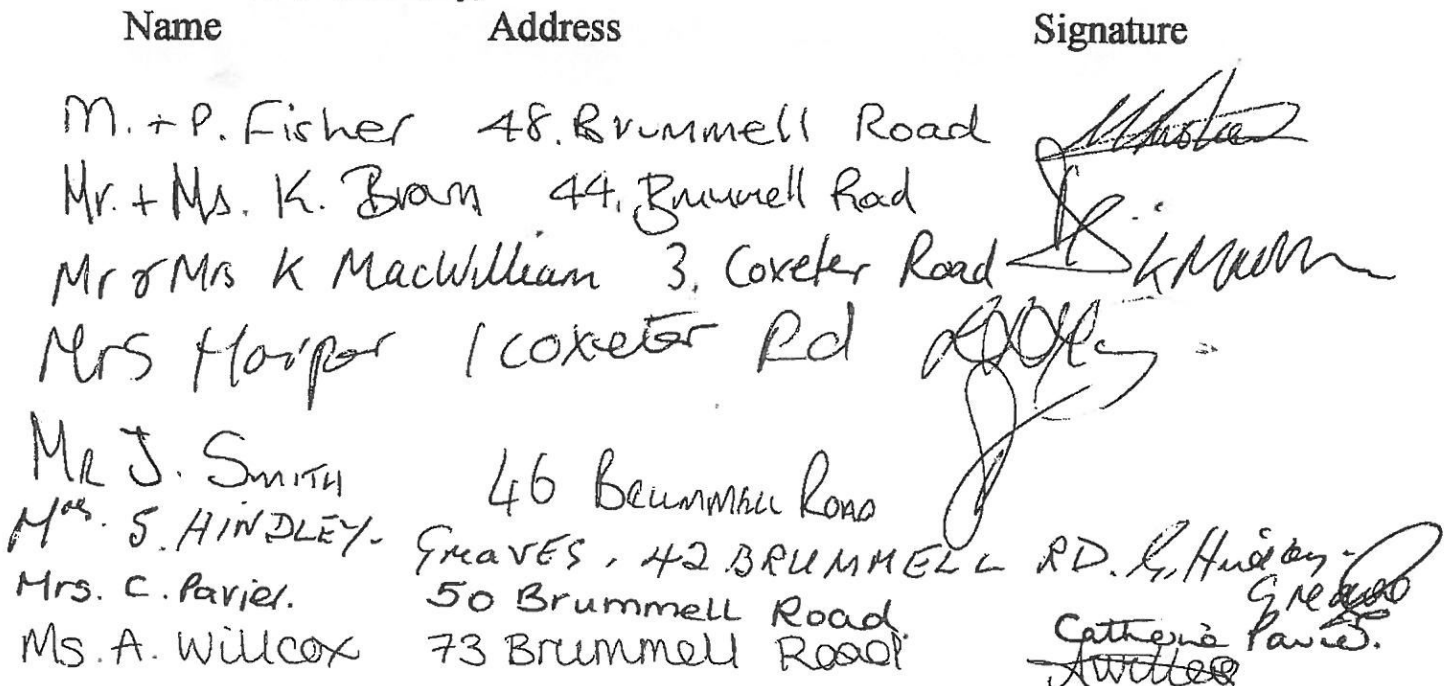 Name Address Signature
M. + P. Fisher 48. Brummell Road
Mr. + Ms. K. Brown 44, Brummell Road
Mr & Mrs K MacWilliam 3, Coxeter Road
Mrs Harper 1 coxeter Rd
MR J. SMITH 46 BRUMMELL ROAD
Mrs. S. HINDLEY- GREAVES. 42 BRUMMELL RD. S. Hindley- Greaves
Mrs. C. Pavier. 50 Brummell Road. Catherine Pavier.
Ms. A. Willcox 73 Brummell Road AWillcox